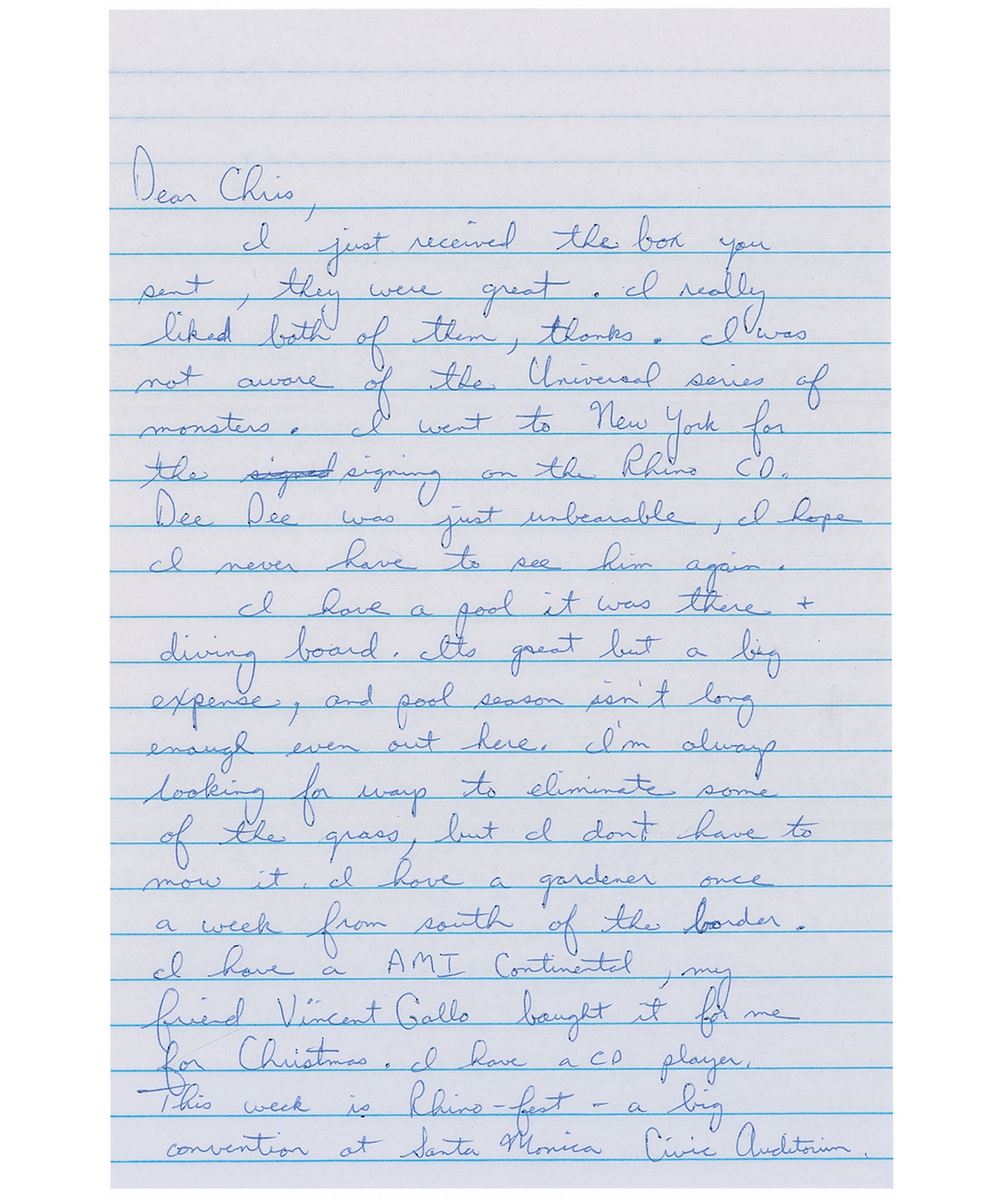 Dear Chris,
I just received the box you
sent, they were great. I really
liked both of them, thanks. I was
not aware of the Universal series of
monsters. I went to New York for
the signed signing on the Rhino CD.
Dee Dee was just unbearable, I hope
I never have to see him again.
I have a pool it was there +
diving board. Its great but a big
expense, and pool season isn't long
enough even out here. I'm always
looking for ways to eliminate some
of the grass, but I don't have to
mow it. I have a gardener once
a week from south of the border.
I have a AMI Continental, my
friend Vincent Gallo bought it for me
for Christmas. I have a CD player.
This week is Rhino-fest - a big
convention at Santa Monica Civic Auditorium.